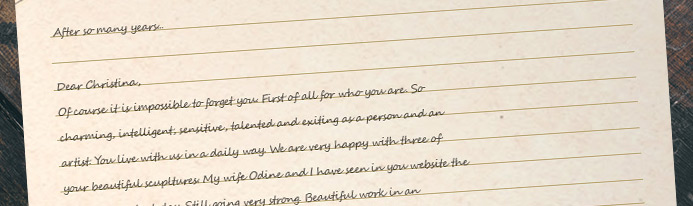 After so many years...
Dear Christina,
Of course it is impossible to forget you. First of all for who you are. So
charming, intelligent, sensitive, talented and exiting as a person and an
artist. You live with us in a daily way. We are very happy with three of
your beautiful scupltures. My wife Odine and I have seen in you website the
Still going very strong. Beautiful work in an